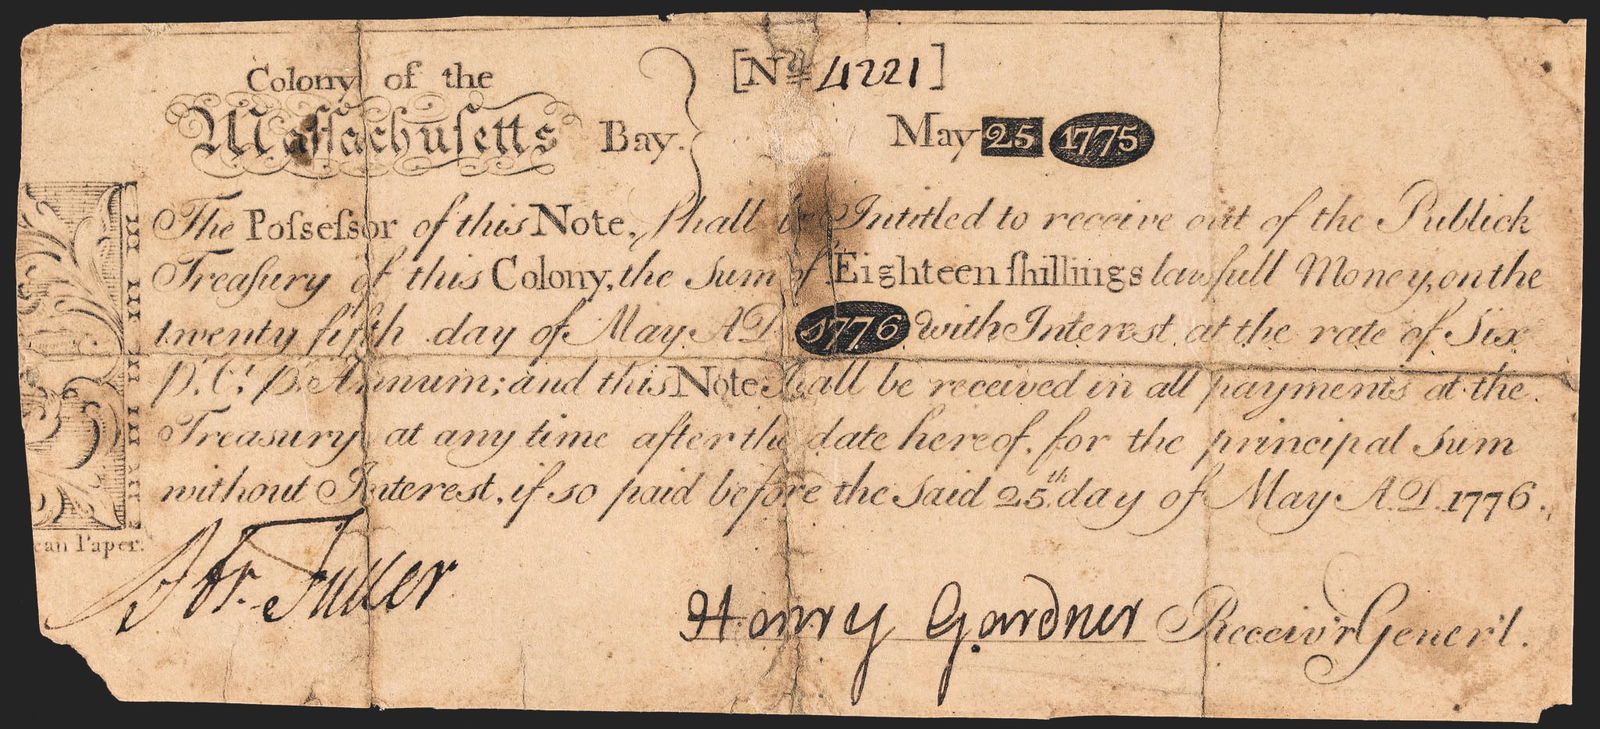 Colony of the
[No 4221]
Maſſachuſetts Bay.
May 25 1775
The Poſseſsor of this Note, ſhall be Intitled to receive out of the Publick
Treaſury of this Colony, the Sum of Eighteen ſhillings lawfull Money, on the
twenty fifth day of May A.D. 1776 with Interest at the rate of Six
Pr. Ct. Pr. Annum; and this Note ſhall be received in all payments at the
Treasury at any time after the date hereof, for the principal Sum
without Interest, if so paid before the Said 25th day of May A.D. 1776.
can Paper.
Abr. Fuller
Henry Gardner Receiv'r Gener'l.